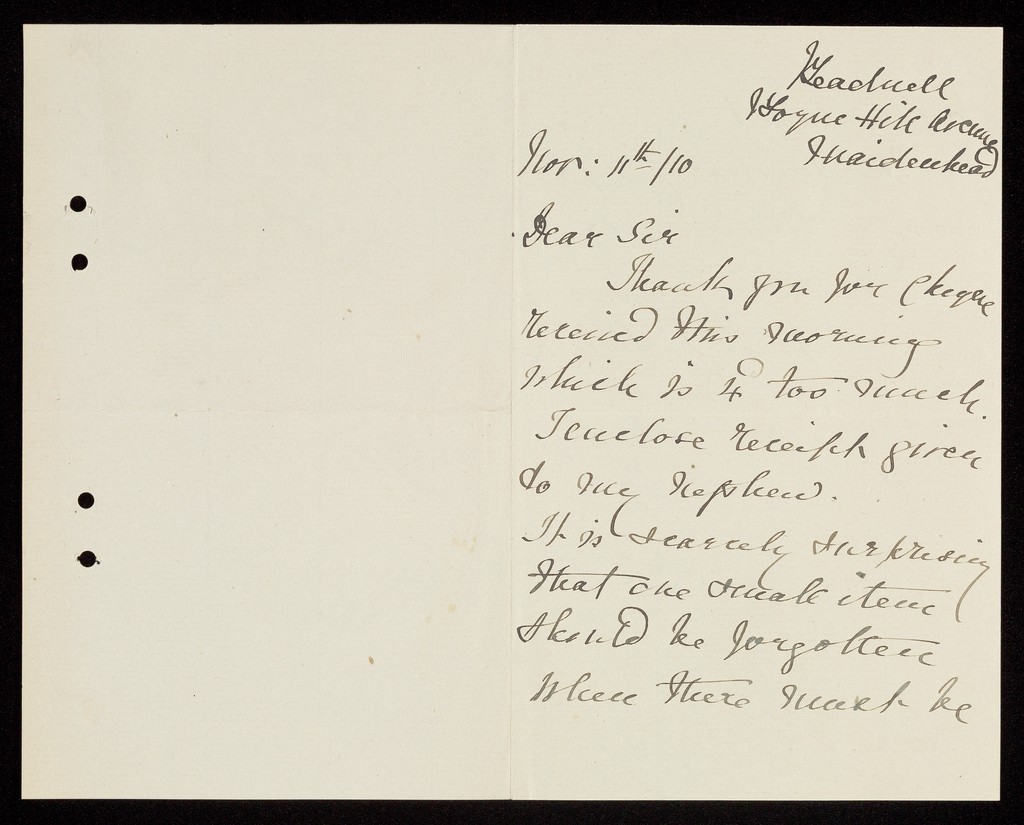 Headnell
Boyne Hill Avenue
Maidenhead
Nov: 11th/10
Dear Sir
Thank you for cheque
received this morning
which is 4d too much.
I enclose receipt given
to my nephew.
It is scarcely surprising
that one small item
should be forgotten
when there must be